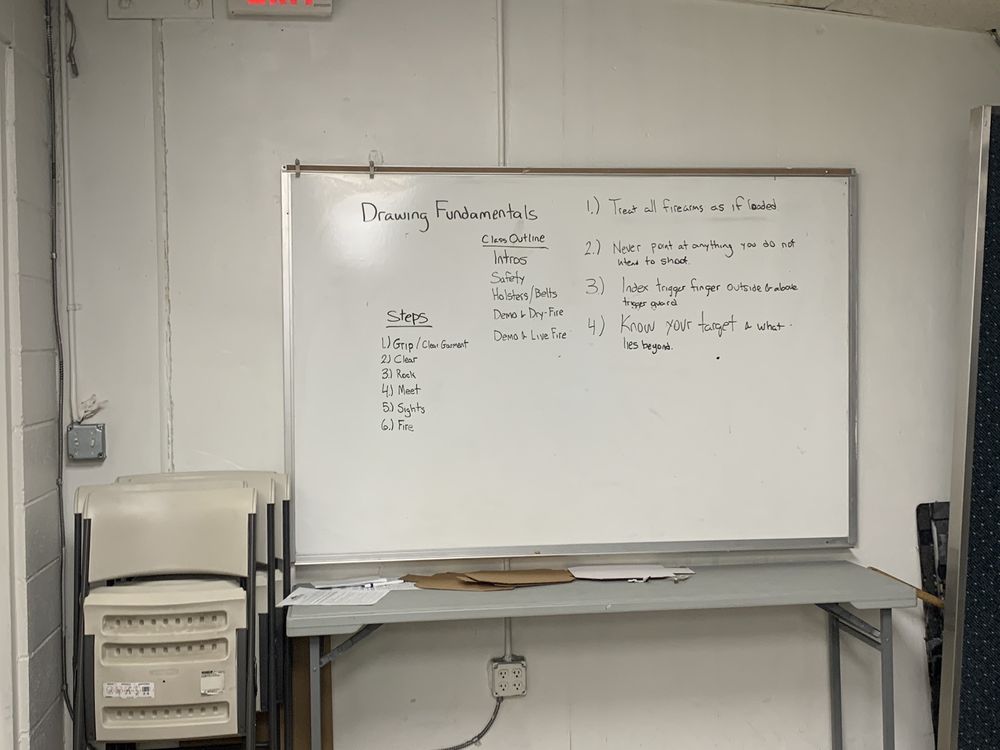 EXIT
Drawing Fundamentals
Class Outline
Intros
Safety
Holsters/Belts
Demo & Dry-Fire
Demo & Live Fire
Steps
1.) Grip / Clear Garment
2.) Clear
3.) Rock
4.) Meet
5.) Sights
6.) Fire
1.) Treat all firearms as if loaded
2.) Never point at anything you do not
intend to shoot.
3.) Index trigger finger outside & above
trigger guard
4.) Know your target & what
lies beyond.